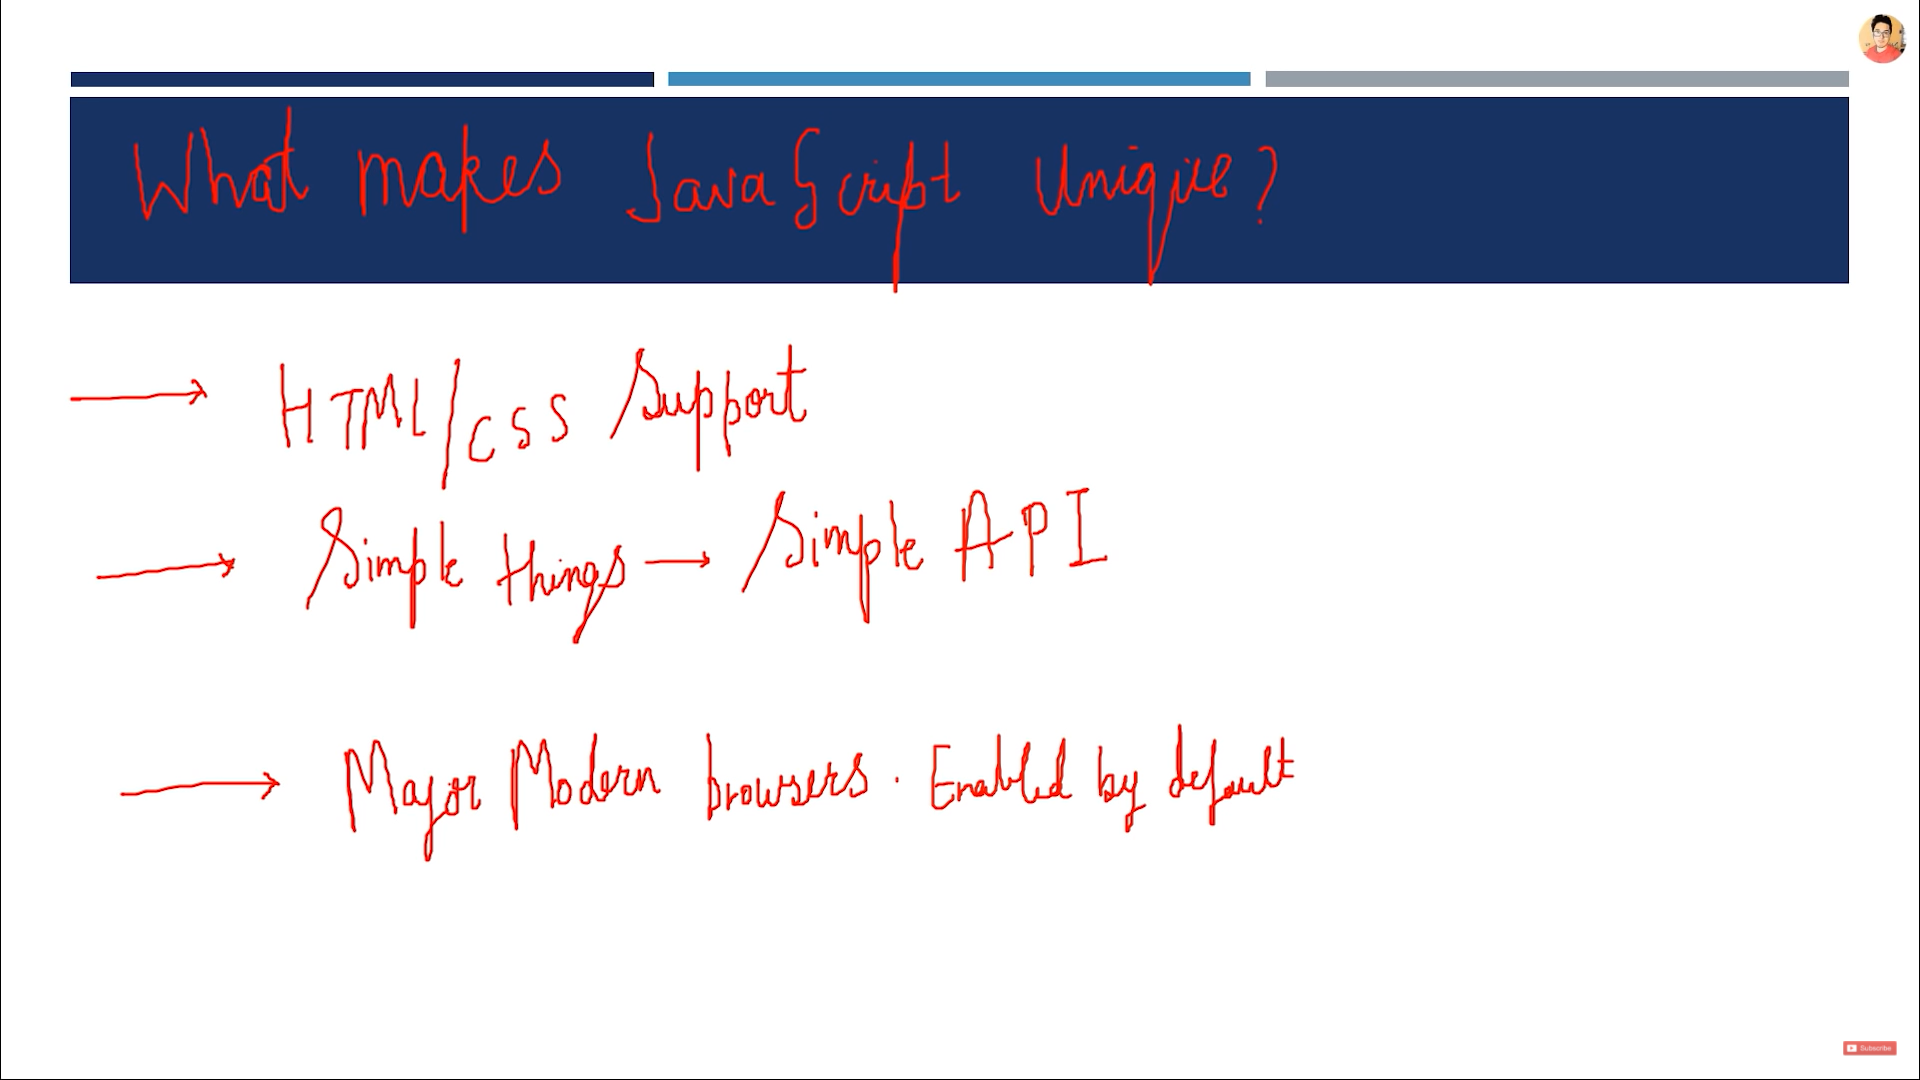 What makes JavaScript Unique?
→ HTML/CSS Support
→ Simple things → Simple API
→ Major Modern browsers. Enabled by default
Subscribe